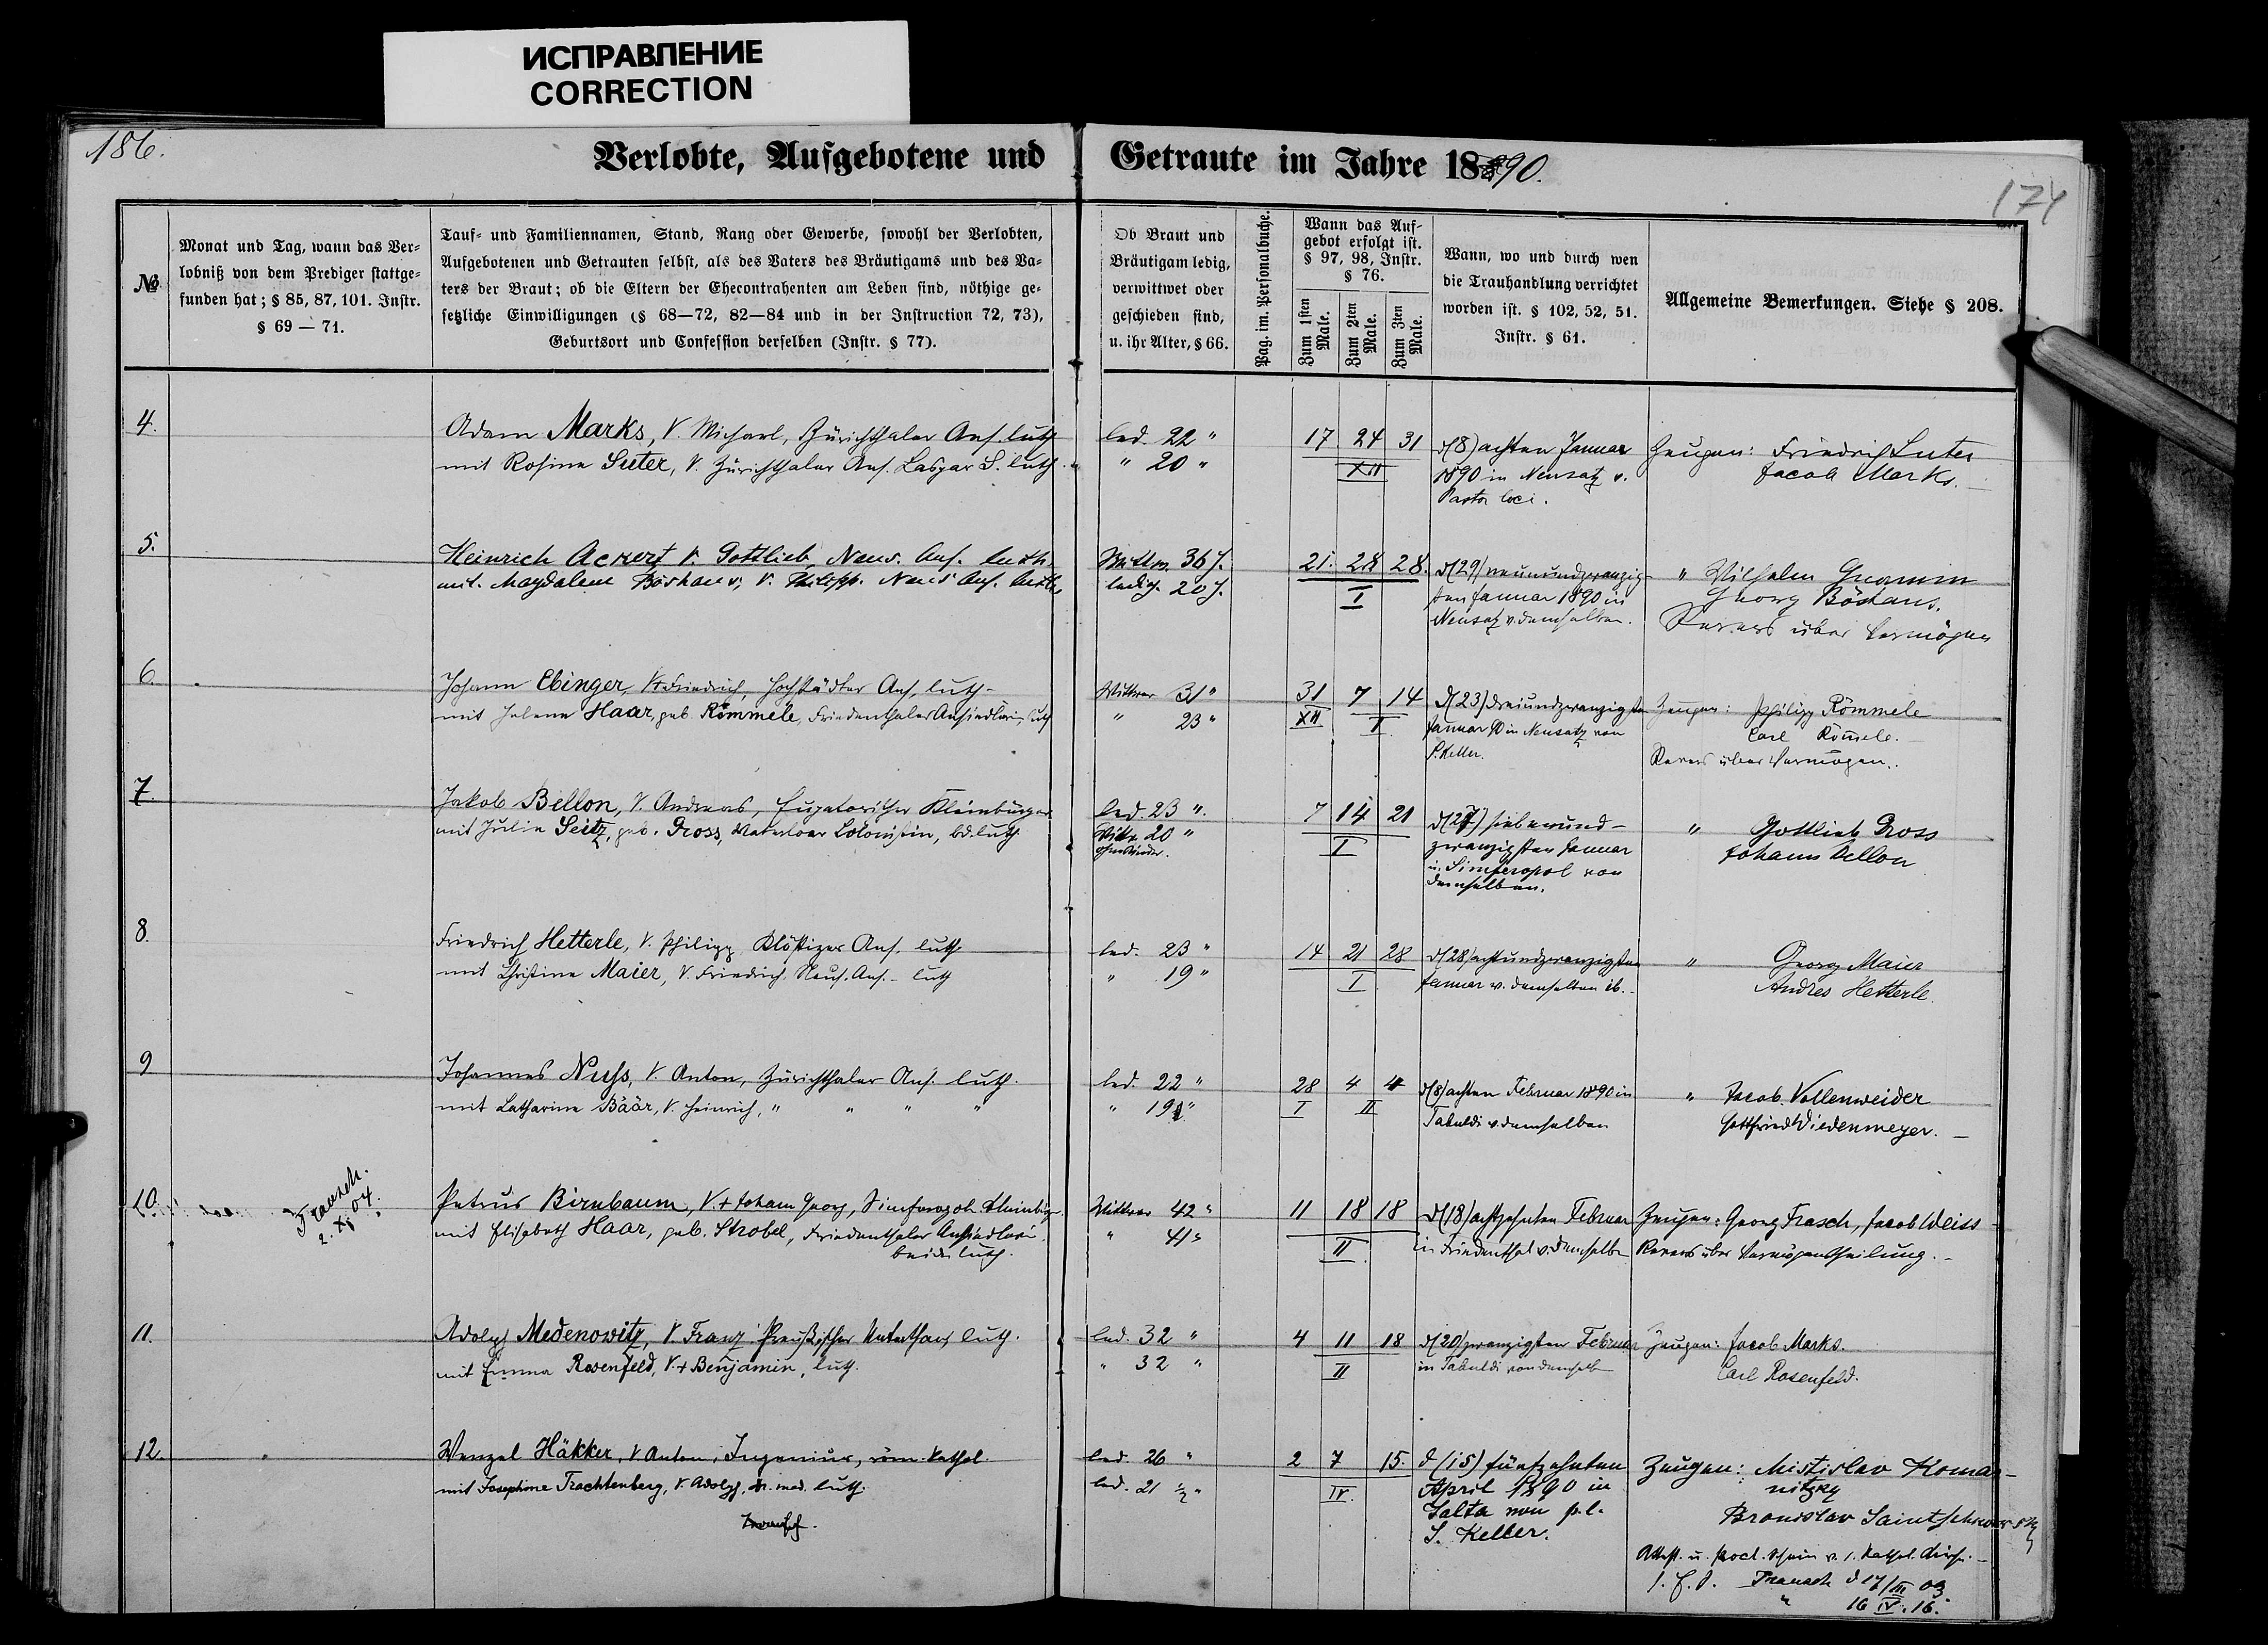 ИСПРАВЛЕНИЕ
CORRECTION
186.
Verlobte, Aufgebotene und Getraute im Jahre 1890.
174
№
Monat und Tag, wann das Ver-
lobniß von dem Prediger stattge-
funden hat; § 85, 87, 101. Instr.
§ 69 — 71.
Tauf- und Familiennamen, Stand, Rang oder Gewerbe, sowohl der Verlobten,
Aufgebotenen und Getrauten selbst, als des Vaters des Bräutigams und des Va-
ters der Braut; ob die Eltern der Ehecontrahenten am Leben sind, nöthige ge-
setzliche Einwilligungen (§ 68—72, 82—84 und in der Instruction 72, 73),
Geburtsort und Confession derselben (Instr. § 77).
Ob Braut und
Bräutigam ledig,
verwittwet oder
geschieden sind,
u. ihr Alter, § 66.
Pag. im. Personalbuche.
Wann das Auf-
gebot erfolgt ist.
§ 97, 98, Instr.
§ 76.
Zum 1sten
Male.
Zum 2ten
Male.
Zum 3ten
Male.
Wann, wo und durch wen
die Trauhandlung verrichtet
worden ist. § 102, 52, 51.
Instr. § 61.
Allgemeine Bemerkungen. Siehe § 208.
4.
Adam Marks, V. Michael, Zürichthaler Ans. luth
mit Rosina Suter, V. Zürichthaler Ans. Caspar S. luth.
led. 22 "
" 20 "
17 24 31
XII
d (8) achten Januar
1890 in Neusatz v.
Pastor loci.
Zeugen: Friedrich Suter
Jacob Marks. —
5.
Heinrich Ackert V. Gottlieb, Neus. Ans. luth.
mit Magdalena Böshans, V. Philipp. Neus Ans. luth.
Wittw. 36 J.
ledig. 20 J.
21. 28 28.
I
d (29) neunundzwanzig-
sten Januar 1890 in
Neusatz v. demselben.
" Wilhelm Gramm
Georg Böshans.
Revers über Vermögen
6.
Johann Ebinger, V+ Friedrich, Hochstädter Ans, luth-
mit Helena Haar, geb Römmele, Friedenthaler Ansiedlerin, luth
Wittwer 31 "
" 23 "
31 7 14
XII I
d (23) dreiundzwanzigsten
Januar 90 in Neusatz von
S. Keller.
Zeugen: Philipp Römmele
Carl Rōmele.
Revers über Vermögen.
7.
Jakob Bellon, V. Andreas, Eupatorischer Kleinbürger
mit Julie Seitz, geb. Gross, Waterloer Colonistin, bd. luth.
led. 23 ".
Wittw. 20 "
ohne Kinder.
7 14 21
I
d (27) siebenund-
zwanzigsten Januar
in Simferopol von
demselben.
" Gottlieb Gross
Johann Bellon
8.
Friedrich Hetterle, V. Philipp, Klöstizer Ans. luth.
mit Christine Maier, V. Friedrich, Neus. Ans. - luth
led. 23 "
" 19 "
14 21 28
I
d (28) achtundzwanzigsten
Januar v. demselben ib.
" Georg Maier
Andres Hetterle.
9
Johannes Nuss, V. Anton, Zürichthaler Ans. luth.
mit Catharina Bäär, V. Heinrich, " " " "
led. 22 "
" 19 "
28 4 4
I II
d (8) achten Februar 1890 in
Tabuldi v demselben
" Jacob. Vollenweider
Gottfried Wiedenmeyer. —
10.
Frausch.
2. XI 04.
Petrus Birnbaum, V.+ Johann Georg, Simferopol. Kleinbürger
mit Elisabeth Haar, geb. Strobel, Friedenthaler Ansiedlerin.
beide luth.
Wittwer 42 "
" 41 "
11 18 18
II
d (18) achtzehnten Februar
in Friedenthal v. demselben
Zeugen: Georg Frasch, Jacob Weiss
Revers über Vermögentheilung. —
11.
Adolph Medenowitz, V. Franz Preußischer Unterthan, luth.
mit Emma Rosenfeld, V.+ Benjamin, luth.
led. 32 "
" 32 "
4 11 18
II
d (20) zwanzigsten Februar
in Tabuldi von demselb
Zeugen: Jacob Marks.
Carl Rosenfeld.
12.
Wenzel Häkker, V Anton, Ingenieur, röm-kathol.
mit Josephine Trachtenberg, V. Adolph, Dr. med. luth.
led. 26 "
led. 21 ½ "
2 7 15.
IV.
d (15) fünfzehnten
April 1890 in
Jalta von p. l.
S. Keller.
Zeugen: Mistislav Komar-
nitzky
Bronislav
Attest. u. Procl. Schein v. r. Kathol. Kirche. —
Frausch d 17/III 03
" 16 IV. 16.